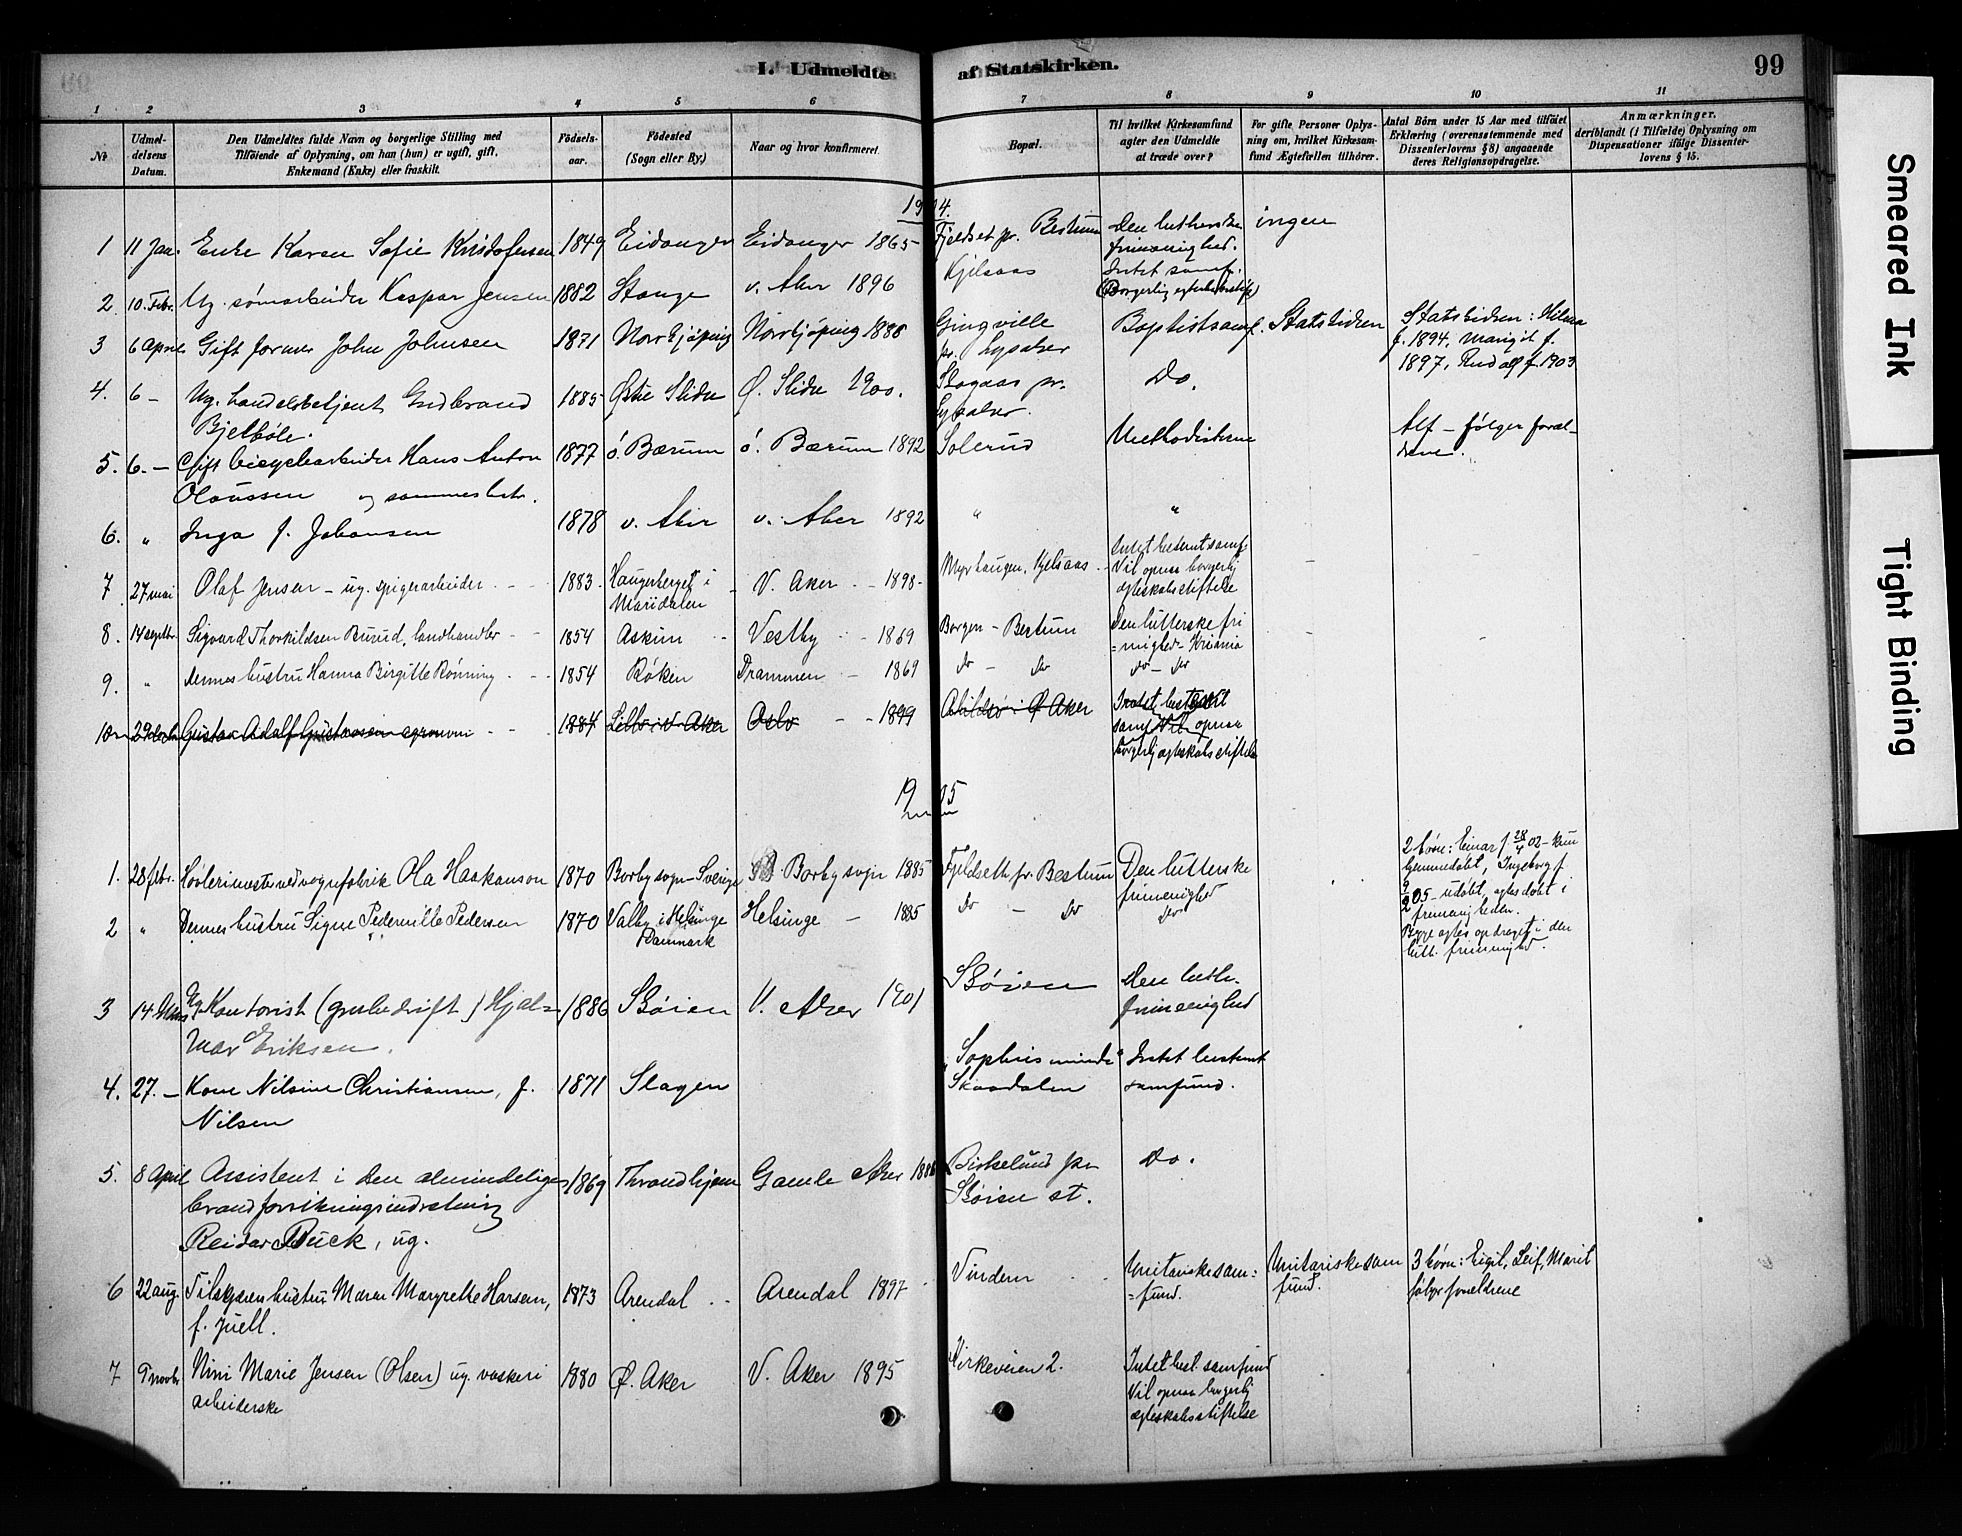 I. Udmeldte af Statskirken. 99
1 2 3 4 5 6 7 8 9 10 11
No
Udmeldelsens Datum.
Den Udmeldtes fulde Navn og borgerlige Stilling med
Tilføiende af Oplysning, om han (hun) er ugift, gift,
Enkemand (Enke) eller fraskilt.
Fødselsaar.
Fødested
(Sogn eller By.)
Naar og hvor konfirmeret.
Bopæl.
Til hvilket Kirkesamfund
agter den Udmeldte
at træde over?
For gifte Personer Oplys-
ning om, hvilket Kirkesam-
fund Ægtefællen tilhører.
Antal Børn under 15 Aar med tilføiet
Erklæring (overensstemmende med
Dissenterlovens § 8) angaaende
deres Religionsopdragelse.
Anmærkninger.
deriblandt (i Tilfælde) Oplysning om
Dispensationer ifølge Dissenter-
lovens § 15.
1904.
1 11 Jan. Enke Karen Sofie Kristofersen 1849 Eidanger Eidanger 1865 Fjeldset pr. Bestum Den lutherske ingen
frimenighed.
2 10. Febr. Ug. sømarbeider Kaspar Jensen 1882 Stange v. Aker 1896 Kjelsaas Intet samf.
(Borgerlig egteskabsstift)
3 6 April Gift former John Johnsen 1871 Norrkjøping Norrkjøping 1888 Gingville Baptistsamf. Statskirken Statskirken: Hilma
pr. Lysaker f. 1894, Margit f.
1897, Rudolf f. 1903
4. 6 - Ug. handelsbetjent Gudbrand 1885 Østre Slidre Ø. Slidre 1900. Skogaas pr. Do.
Bjelbøle. Lysaker.
5. 6. - Gift bicyclearbeider Hans Anton 1877 ø. Bærum ø. Bærum 1892 Solerud Methodisterne Alf - følger foræl-
Olaussen og sammes hustr. drene.
6. " Inga f. Johansen 1878 v. Aker v. Aker 1892 " "
7 27 mai Olaf Jensen - ug. spigerarbeider 1883 Haugerberget i V. Aker 1898 Myrhaugen, Kjelsaas Intet bestemt samf.
Maridalen Vil opnaa borgerlig
ægteskabsstiftelse
8. 14 septbr. Sigvard Thorkildsen Burud, landhandler 1854 Askim Vestby 1869 Borgen - Bestum Den lutterske fri
=mighed - Kriania
9. " Dennes hustru Hanna Birgitte Rønning 1854 Røken Drammen 1869 do - do do - do
10 29 Gustav Adolf Gustavsen agronom 1884 V. Aker Oslo 1899 Ø Aker Intet bestemt
samf Vil opnaa
borgerlig ægteskabsstiftelse
1905
1. 28 febr. Høvlerimester ved vognfabrik Ola Haakanson 1870 Borby sogn Sverige Borby sogn 1885 Fjeldseth pr. Bestum Den lutterske 2 børn: Einar f 28/4 02 - kun
frimenighed hjemmedøbt, Ingeborg f.
2 " Dennes hustru Signe Pedernille Pedersen 1870 Valby i Helsinge Helsinge 1885 do - do do
Danmark
05 - udøbt, agtes døbt i
frimenigheden.
Begge agtes opdraget i den
luth. frimenighed.
3 14 Mars Ug. Kontorist (grubedrift) Hjal= 1886 Skøien V. Aker 1901 Skøien Den luth.
mar Eriksen. frimenighed
4. 27. - Kone Nilsine Christiansen, f. 1871 Slagen "Sophiesminde" Intet bestemt
Nilsen Skaadalen samfund.
5. 8 April Assistent i den almindelige 1869 Throndhjem Gamle Aker Birkelund pr. Do.
brandforsikringsindretning Skøien st.
Reidar Buck, ug.
6 22 aug. hustru Maren Margrethe Hansen, 1873 Arendal Arendal 1897 Vinderen Unitariske sam= Unitariske sam 3 børn: Eigil, Leif, Marit
f. Juell. =fund. fund. følger forældrene
7 9 novbr Nini Marie Jensen (Olsen) ug. vaskeri 1880 Ø. Aker V. Aker 1895 Kirkeveien 2. Intet best. samfund
arbeiderske Vil opnaa borgerlig
ægteskabsstiftelse
Smeared Ink
Tight Binding